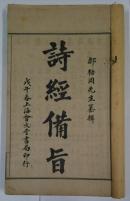 鄒梧岡先生纂輯
詩經備旨
戊午春上海會文堂書局印行